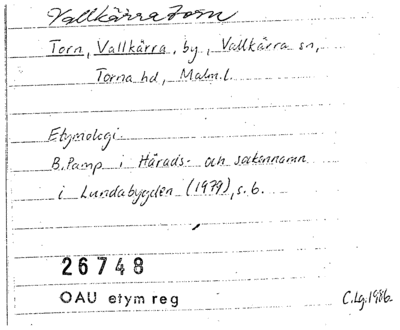 Vallkärratorn
Torn, Vallkärra, by, Vallkärra sn,
Torna hd, Malm.l.
Etymologi
B. Pamp i Härads- och sockennamn
i Lundabygden (1979), s. 6.
26748
OAU etym reg
C.Lg. 1986.